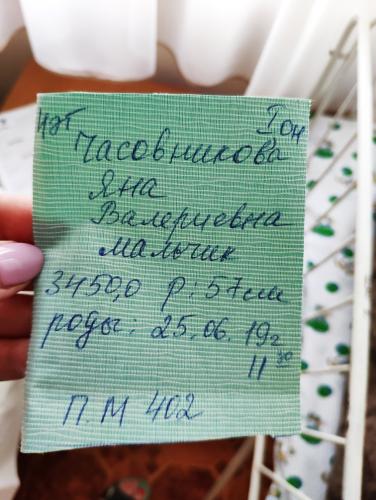 I он
Часовникова
Яна
Валериевна
мальчик
3450,0 р: 57 см
роды: 25.06.19г
11 30
П.М 402